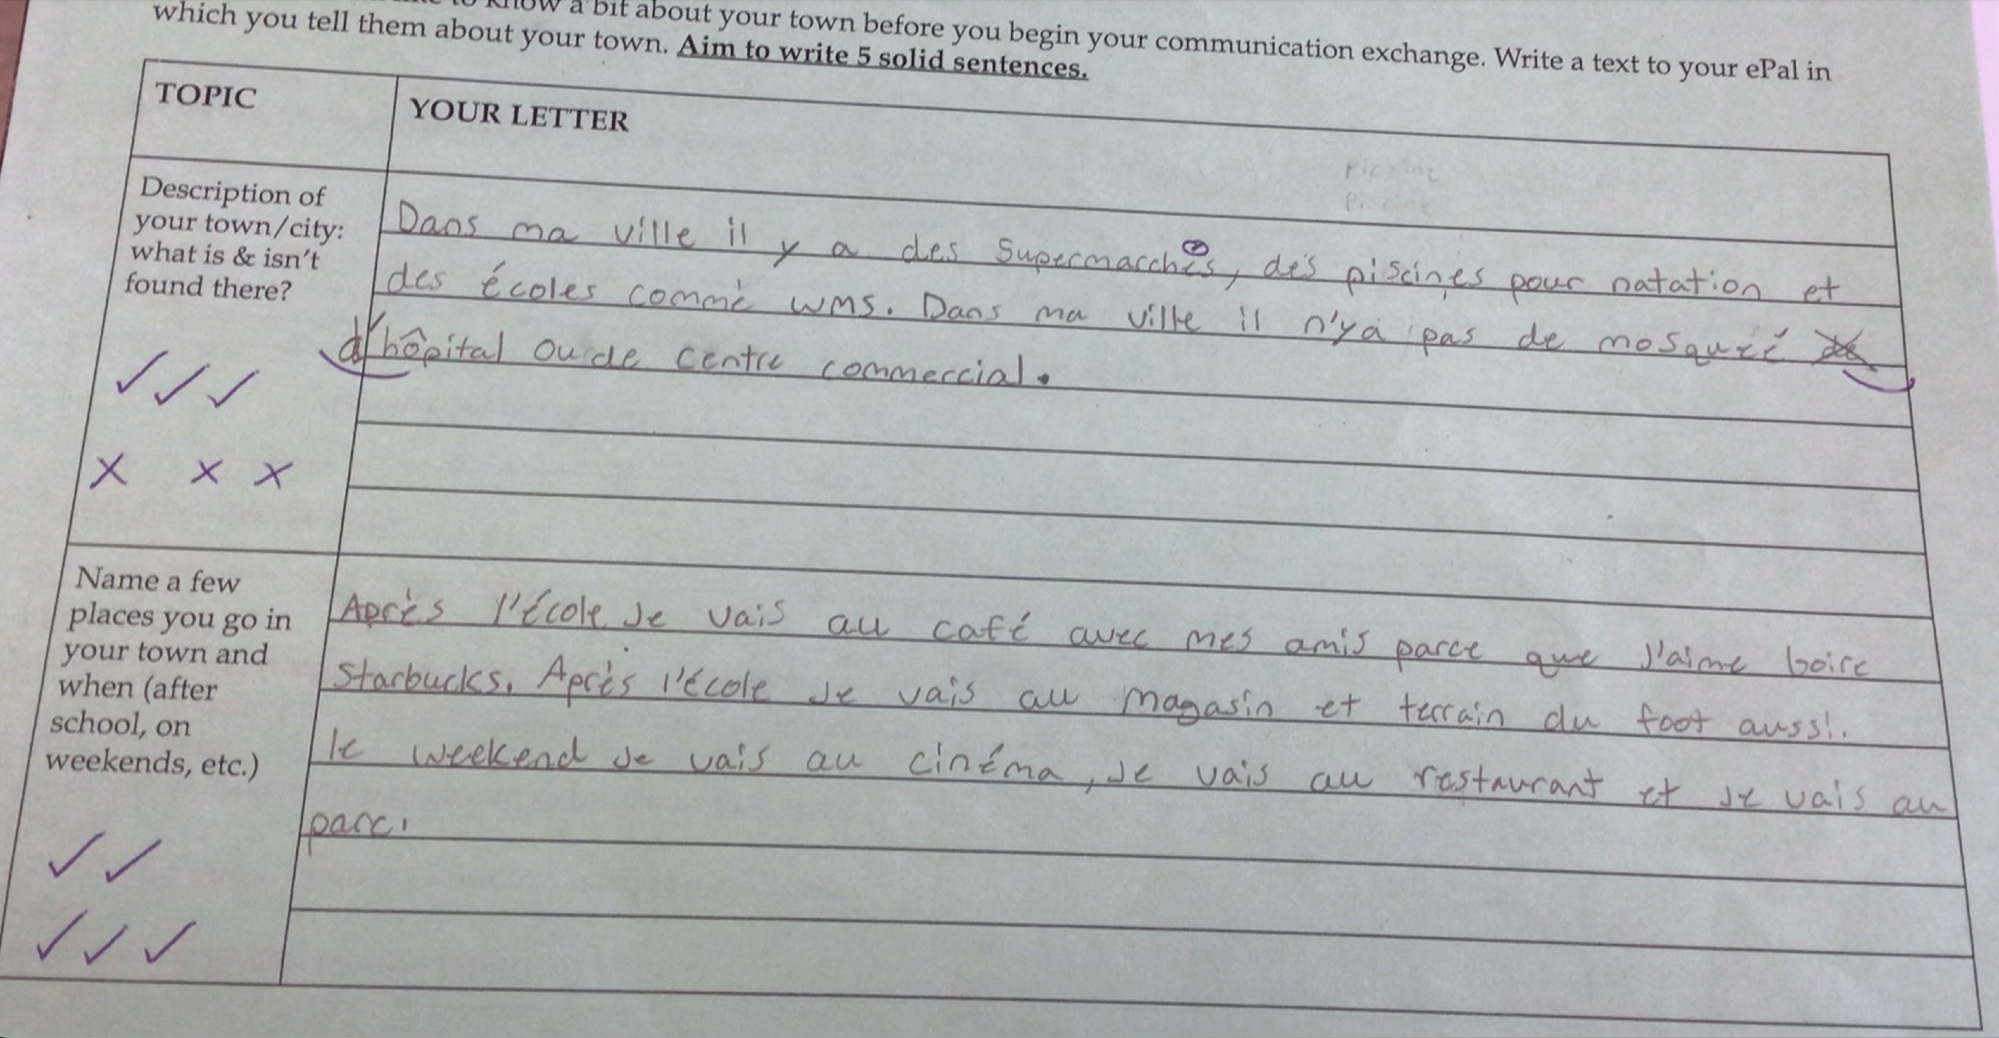 know a bit about your town before you begin your communication exchange. Write a text to your ePal in
which you tell them about your town. Aim to write 5 solid sentences.
TOPIC
YOUR LETTER
Description of
your town/city:
what is & isn't
found there?
Dans ma ville il y a des supermarchés, des piscines pour natation et
des écoles comme WMS. Dans ma ville il n'ya pas de mosqueé
d'hôpital ou de centre commercial.
Name a few
places you go in
your town and
when (after
school, on
weekends, etc.)
Après l'école je vais au café avec mes amis parce que j'aime boire
Starbucks. Après l'école je vais au magasin et terrain du foot aussi.
le weekend je vais au cinéma, je vais au restaurant et je vais au
parc.